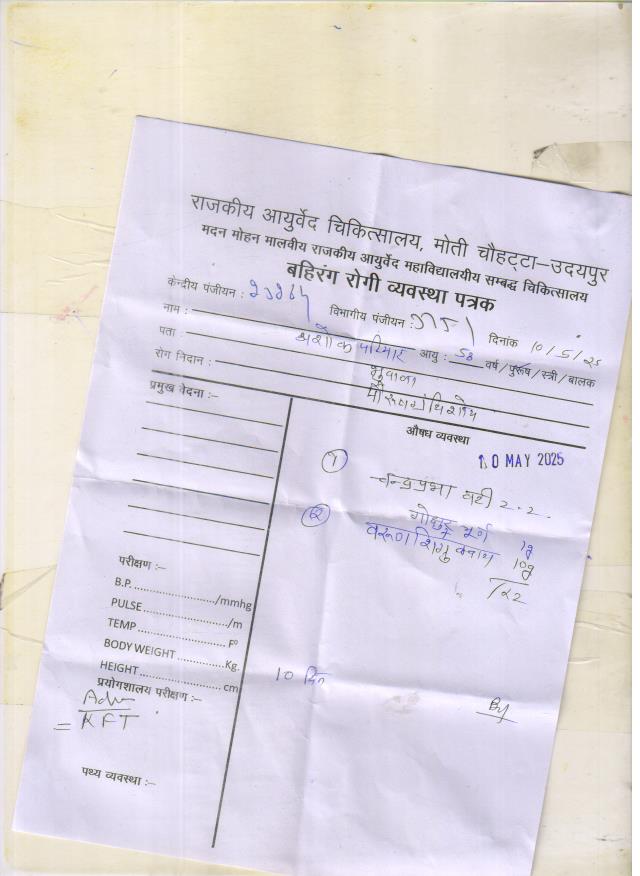 राजकीय आयुर्वेद चिकित्सालय, मोती चौहट्टा–उदयपुर
मदन मोहन मालवीय राजकीय आयुर्वेद महाविद्यालयीय सम्बद्ध चिकित्सालय
बहिरंग रोगी व्यवस्था पत्रक
केन्दीय पंजीयन : विभागीय पंजीयन : दिनांक 10/5/25
नाम : अशोक परिमार आयु : 58 वर्ष/पुरूष/स्त्री/बालक
पखा : भुवाना
रोग निदान :
प्रमुख वेदना :-
औषध व्यवस्था
10 MAY 2025
1 चन्द्रप्रभा वटी 2-2
2 गोक्षुर चूर्ण 1g
वरूणशिग्रु क्वाथ 10g
1x2
परीक्षण :-
B.P. ......................./mmhg
PULSE ......................./m
TEMP ....................... F⁰
BODY WEIGHT ............. Kg.
HEIGHT ....................... cm
प्रयोगशालय परीक्षण :-
10 दिन
Adv
= KFT
पथ्य व्यवस्था :-